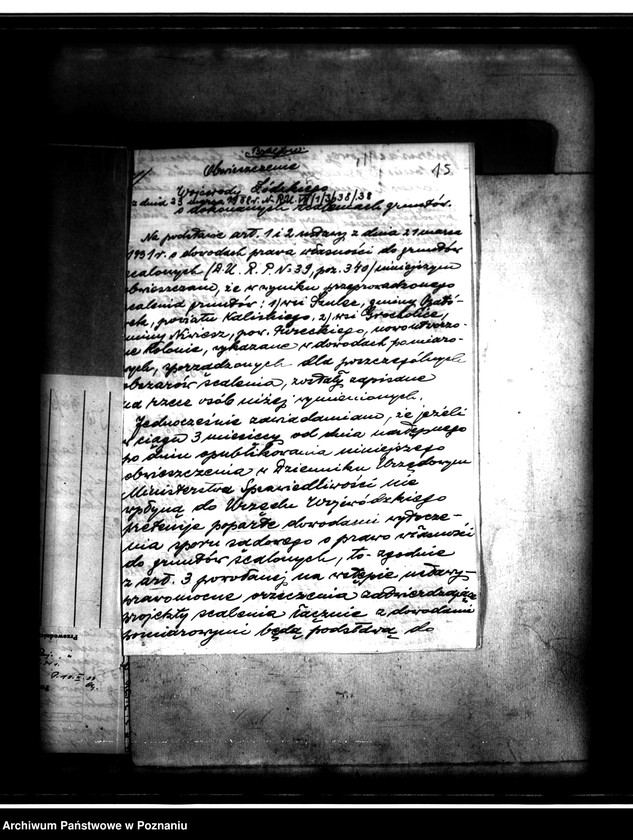 15
Obwieszczenie
Wojewody Łódzkiego
z dnia 23 marca 1938 r. Nr. RU.
o dokonanych scaleniach gruntów.
Na podstawie art. 1 i 2 ustawy z dnia 21 marca
1931 r. o dowodach prawa własności do gruntów
scalonych /D.U. R.P. № 39, poz. 340/ niniejszym
obwieszczam, że w wyniku przeprowadzonego
scalenia gruntów: 1/ wsi Szulec, gminy Opató-
wek, powiatu Kaliskiego, 2/ wsi Grocholice,
gminy Niewiesz, pow. Tureckiego, nowoutworzo-
ne kolonie, wykazane w dowodach pomiaro-
wych, sporządzonych dla poszczególnych
obszarów scalenia, zostały zapisane
na rzecz osób niżej wymienionych.
Jednocześnie zawiadamiam, że jeżeli
w ciągu 3 miesięcy od dnia następnego
po dniu opublikowania niniejszego
obwieszczenia w Dzienniku Urzędowym
Ministerstwa Sprawiedliwości nie
wpłyną do Urzędu Wojewódzkiego
pretensje poparte dowodami wytocze-
nia sporu sądowego o prawo własności
do gruntów scalonych, to - zgodnie
z art. 3 powołanej na wstępie ustawy -
prawomocne orzeczenia zatwierdzające
projekty scalenia łącznie z dowodami
pomiarowymi będą podstawą do
Archiwum Państwowe w Poznaniu